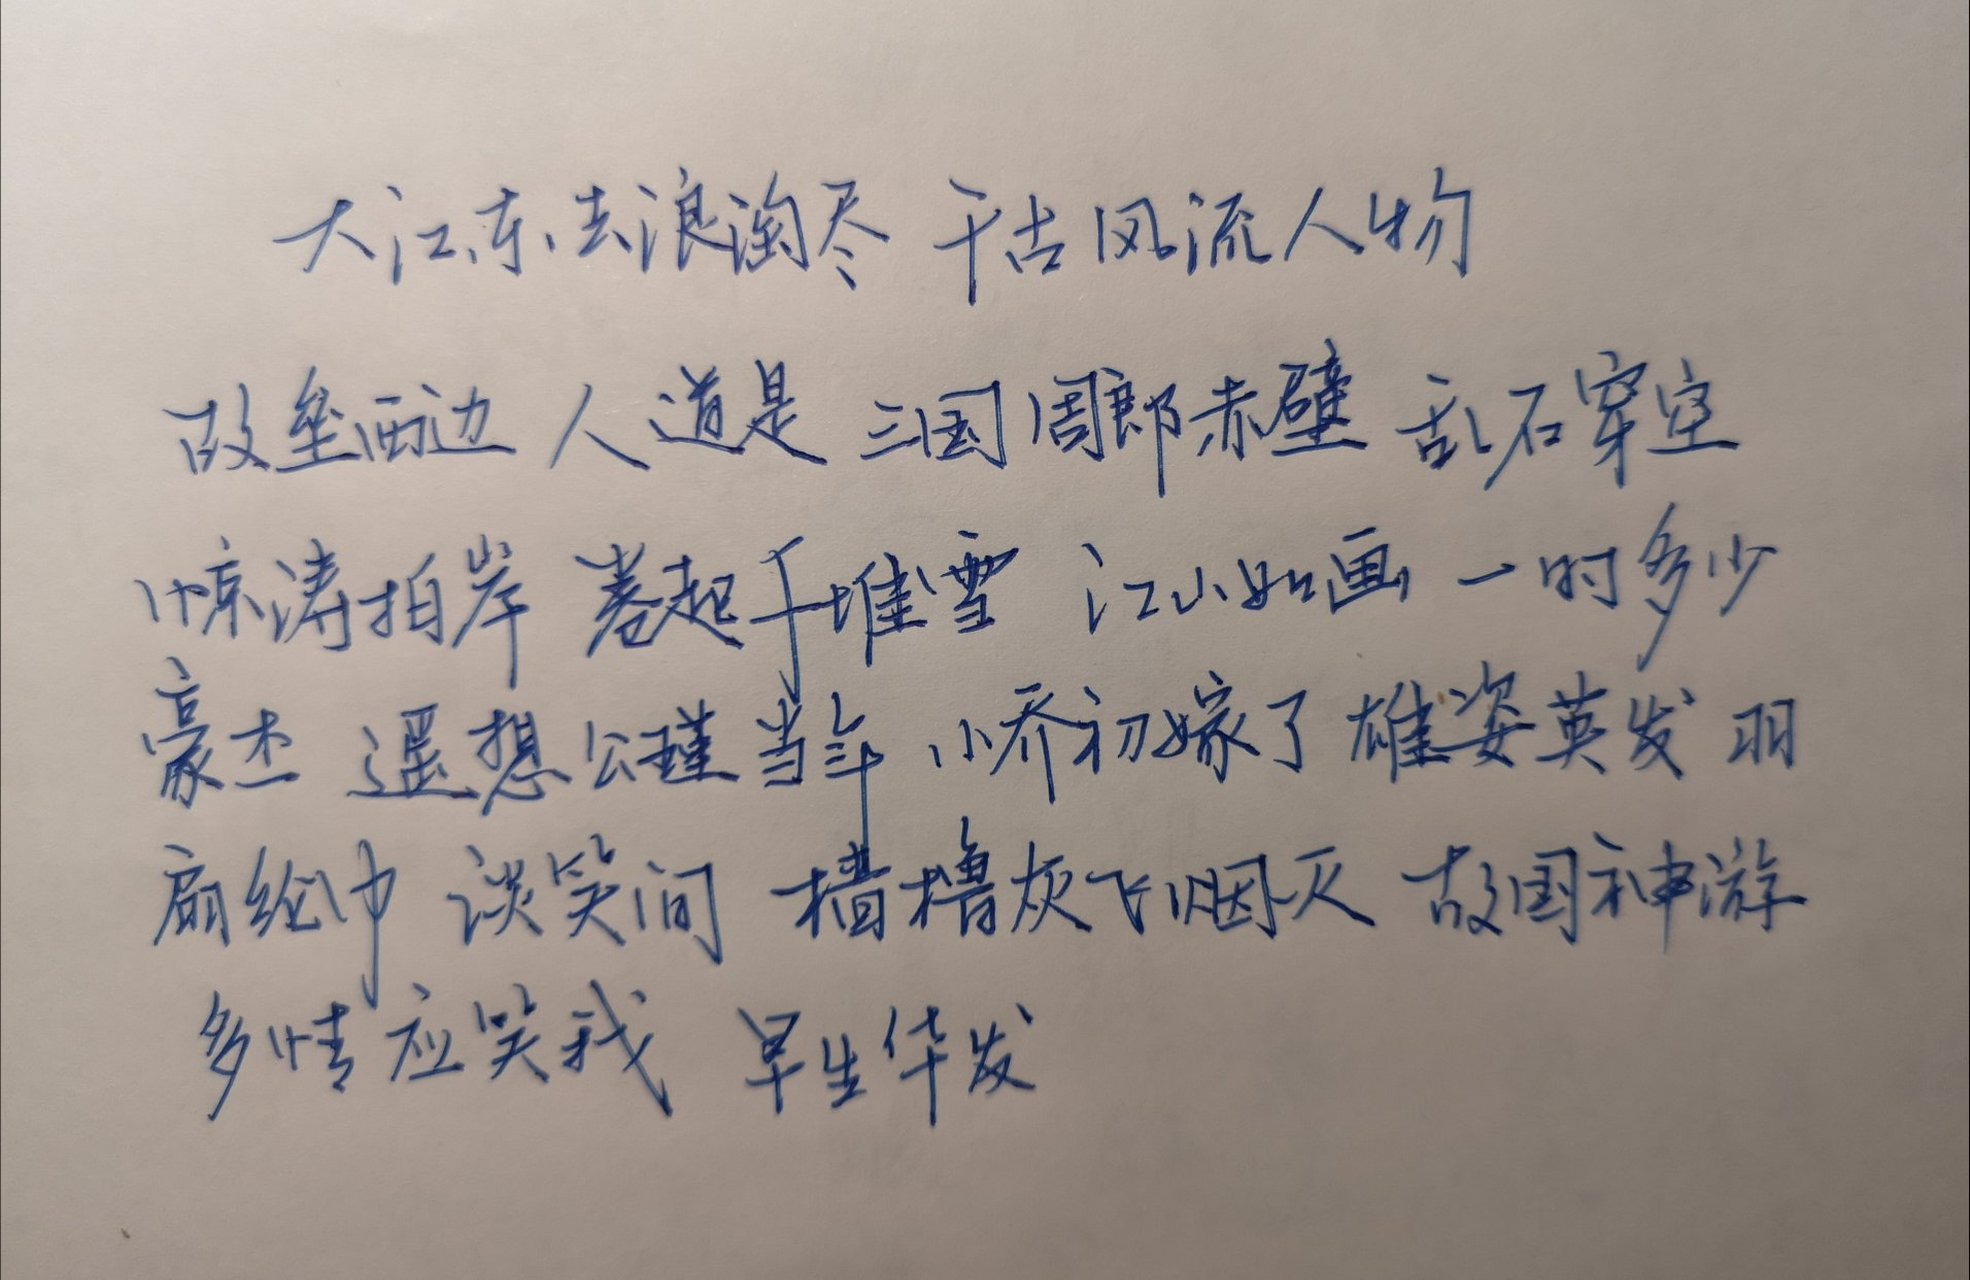 大江东去浪淘尽 千古风流人物
故垒西边 人道是 三国周郎赤壁 乱石穿空
惊涛拍岸 卷起千堆雪 江山如画 一时多少
豪杰 遥想公瑾当年 小乔初嫁了 雄姿英发 羽
扇纶巾 谈笑间 樯橹灰飞烟灭 故国神游
多情应笑我 早生华发